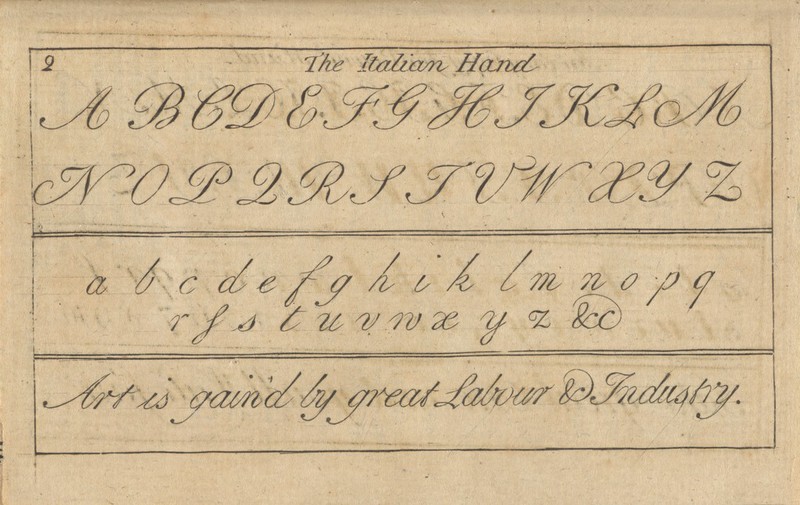 2 The Italian Hand
A B C D E F G H I K L M
N O P Q R S T U W X Y Z
a b c d e f g h i k l m n o p q
r ſ s t u v w x y z &c
Art is gain'd by great Labour & Industry.